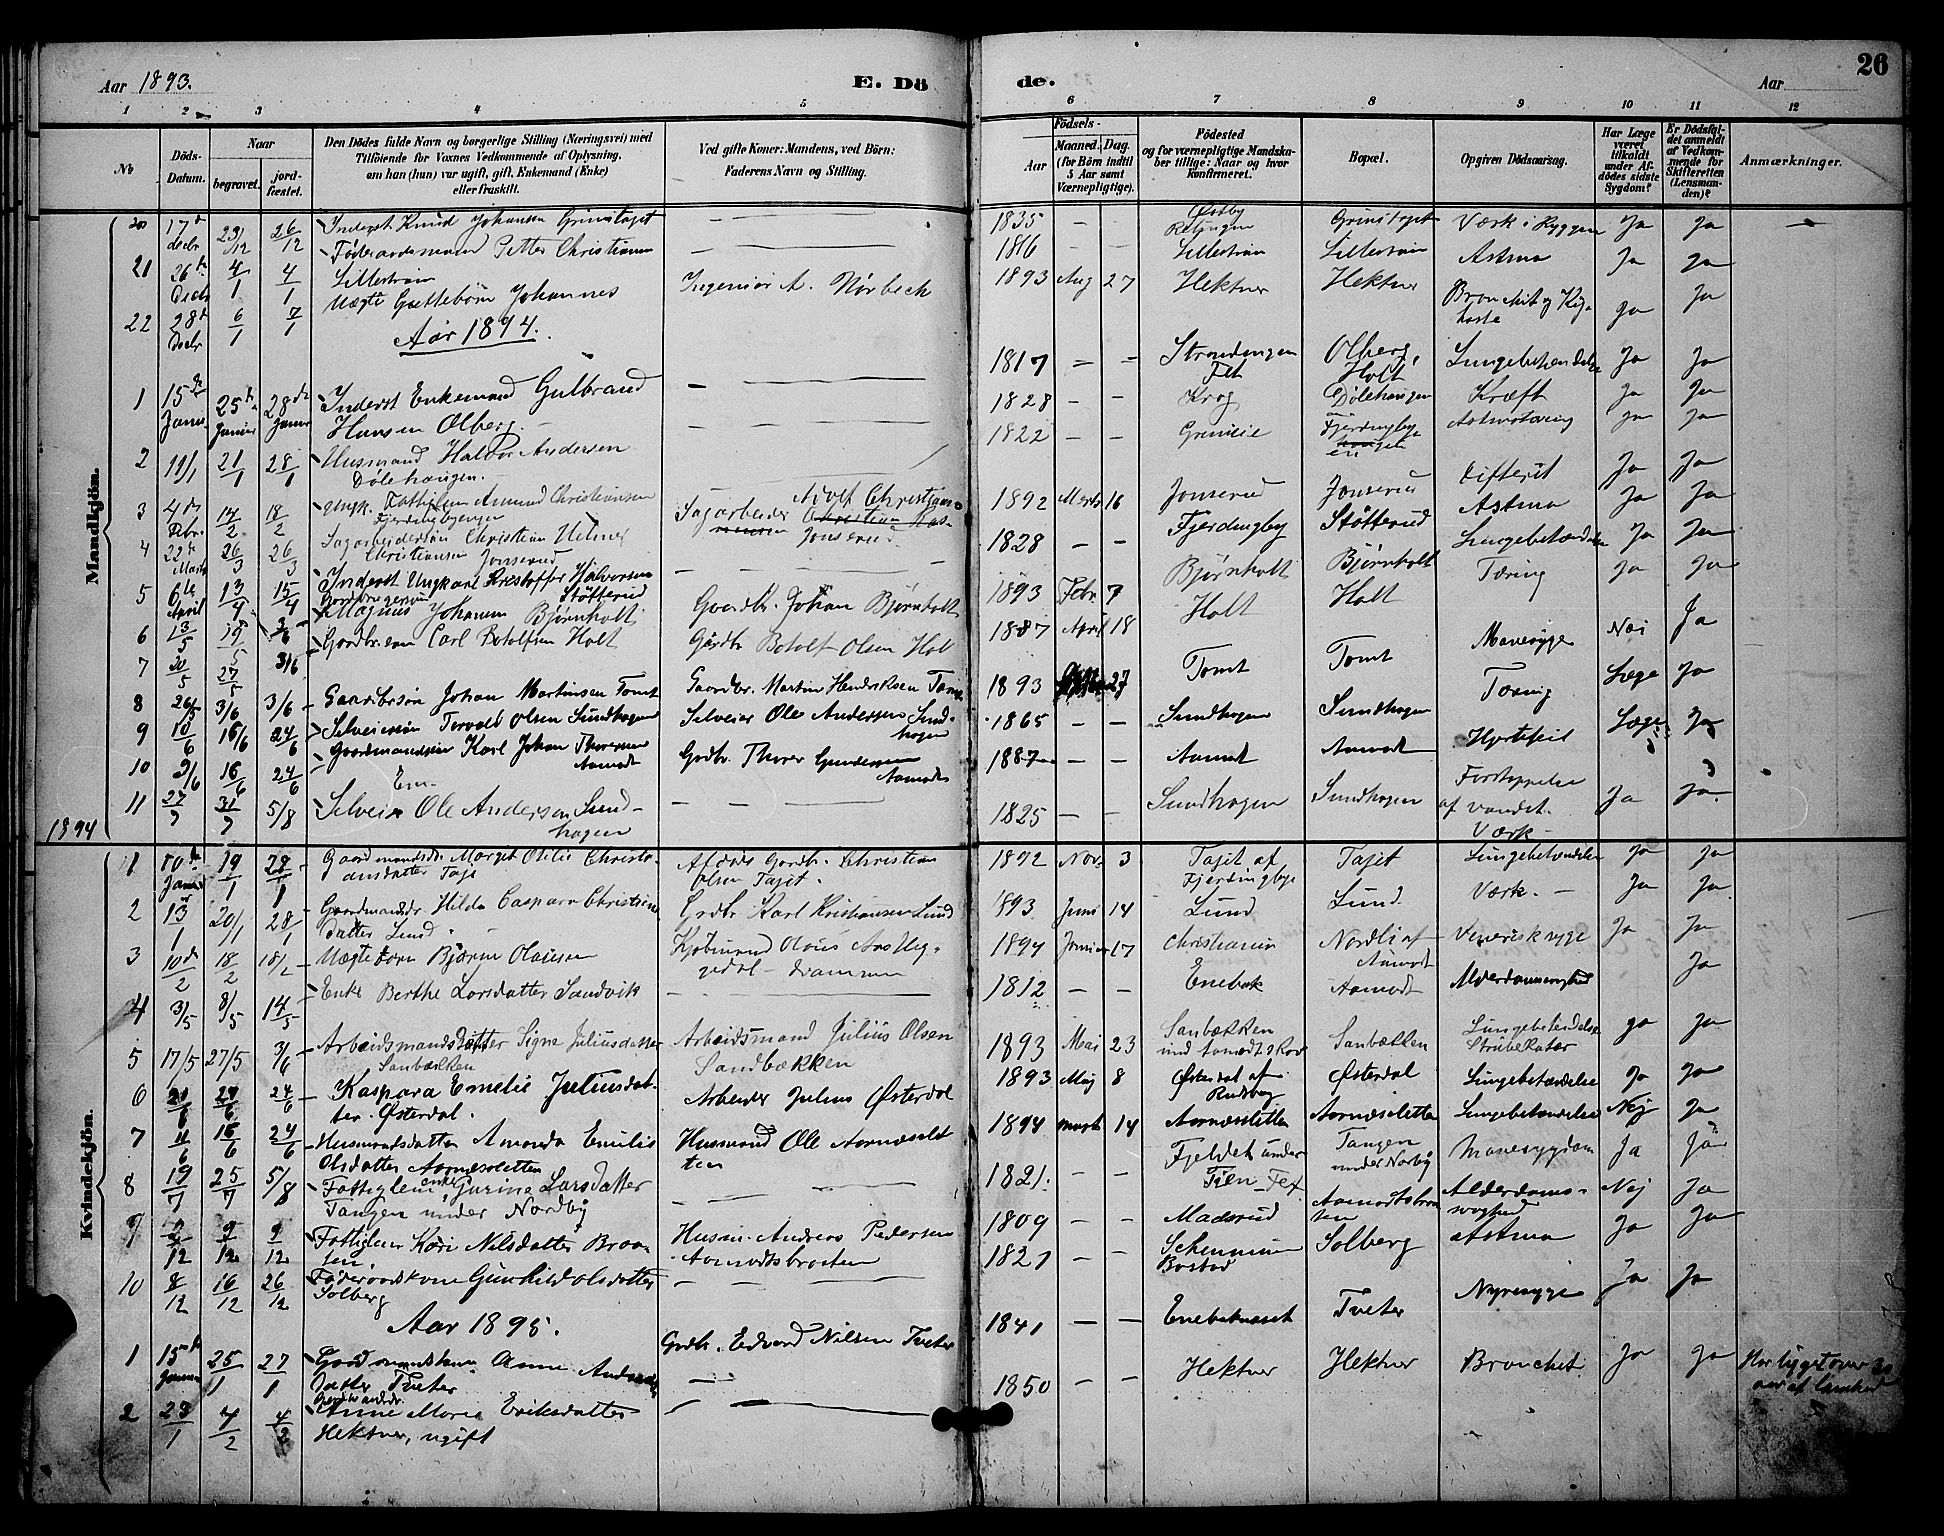 Aar 1893.
E. Döde.
Aar
26
1 2 3 4 5 6 7 8 9 10 11 12
No
Döds-Datum.
Naar
begravet.
jord-fæstet.
Den Dödes fulde Navn og borgerlige Stilling (Næringsvei) med
Tilföiende for Voxnes Vedkommende af Oplysning,
om han (hun) var ugift, gift, Enkemand (Enke)
eller fraskilt.
Ved gifte Koner: Mandens, ved Börn:
Faderens Navn og Stilling.
Födsels-
Aar
Maaned. Dag.
(for Börn indtil
5 Aar samt
Værnepligtige).
Födested
og for værnepligtige Mandska-
ber tillige: Naar og hvor
konfirmeret.
Bopæl.
Opgiven Dödsaarsag.
Har Læge
været
tilkaldt
under Af-
dödes sidste
Sygdom?
Er Dödsfal-
det anmeldt
af Vedkom-
mende for
Skifteretten
(Lensman-
den)?
Anmærkninger.
Mandkjön.
20 17d Decbr 23/12 26/12 Inderst Knud Johansen Grinstøyet — 1835 — — Østby Rælingen Grinstøyet Værk i Ryggen Ja Ja —
21 26 Decbr 4/1 4/1 Føderaadsmand Petter Christiansen Lillestrøm — 1816 — — Lillestrøm Lillestrøm Astma Ja Ja
22 28d Decbr 6/1 7/1 Uægte Guttebørn Johannes Ingeniør A. Nørbech 1893 Aug 27 Hektner Hektner Bronchit og Kighoste Ja Ja
Aar 1894.
1 15de Januar 25de Januar 28de Januar Inderst Enkemand Gulbrand Hansen Olberg. — 1817 — — Strandengen Fet Olberg, Holt Lungebetændelse Ja Ja
2 11/1 21/1 28/1 Husmand Halvor Andersen Dølehaugen. — 1828 — — Krog Dølehaugen Kræft Ja Ja
3 4de Febr. 14/2 18/2 Ungk. Fattiglem Amund Christiansen Fjerdingbyengen — 1822 — — Grinilie Fjerdingbyengen Ja Ja
4 22de Marts 26/3 26/3 Sagarbeidersøn Christian Helmer Christiansen Jonserud Sagarbeider Adolf Christiansen Jonserud 1892 Marts 16 Jonserud Jonserud Difterit Ja Ja
5 6te April 13/4 15/4 Inderst Ungkarl Kristoffer Halvorsen Støtterud — 1828 — — Fjerdingby Støtterud Astma Ja Ja
6 13/5 19/5 3/6 Gordbrugersøn Magnus Johansen Bjørnholt Gordbr. Johan Bjørnholt 1893 Febr 7 Bjørnholt Bjørnholt Lungebetændelse Ja Ja
7 20/5 27/5 3/6 Gordbr.søn Carl Botolfsen Holt Gordbr Botolf Olsen Holt 1887 April 18 Holt Holt Tæring Ja Ja
8 26/5 3/6 3/6 Gaardbr.søn Johan Martinsen Tomt Gaardbr. Martin Hendriksen Tomt 1893 27 Tomt Tomt Mavesyge Nei Ja
9 10/6 16/6 24/6 Selveiersøn Torvald Olsen Sundhagen Selveier Ole Andersen Sundhagen 1865 — — Sundhagen Sundhagen Tæring Læge Ja
10 9/6 16/6 24/6 Gaardmandssøn Karl Johan Thoresen Aamodt Grdbr. Thorer Gundersen Aamodt 1887 — — Aamodt Aamodt Hjertefeil Læge Ja
11 27/7 31/7 5/8 Em. Selveier Ole Andersen Sundhagen — 1825 — — Sundhagen Sundhagen Forstoppelse af vandet. Ja Ja
1894
Kvindekjön.
1 10de Januar 19/1 28/1 Gaardmandsdr. Marget Otilie Christiansdatter Tajet Afdøde Gordbr. Christian Olsen Tajet. 1892 Nov. 3 Tajet af Fjerdingby Tajet Værk — Lungebetændelse Ja Ja
2 13/1 20/1 28/1 Gaardmandsdr Hilda Caspara Christiansdatter Lund Grdbr. Karl Kristiansen Lund 1893 Juni 14 Lund Lund. Værk. — Ja Ja
3 10de/2 18/2 18/2 Uægtebarn Bjarne Olausen Kjøbmand Olaus Drammen 1894 Januar 17 Christiania Nordli af Aamodt Venerisk syge Ja Ja
4 3/5 8/5 14/5 Enke Berthe Larsdatter Sandvik — 1812 — — Enebak Aamodt Alderdomssvaghed Ja
5 17/5 27/5 3/6 Arbeidsmandsdatter Signe Juliusdatter Sanbækken Arbeidsmand Julius Olsen Sandbækken 1893 Mai 23 Sanbækken und Aamodt skov Sanbækken Lungebetændelse Strubekatar Ja Ja
6 20/6 24/6 24/6 Kaspara Emelie Juliusdatter. Østerdal. Arbeider Julius Østerdal 1893 Maj 8 Østerdal af Rudsbog Østerdal Lungebetændelse Ja Ja
7 11/6 16/6 24/6 Husmandsdatter Amanda Emilie Olsdatter Aarnæsletten Husmand Ole Aarnæsletten 1894 Marts 14 Aarnæsletten Aarnæsletten Lungebetændelse Nej Ja
8 19/7 25/7 5/8 Fattiglem enke Gurine Larsdatter Tangen under Nordby — 1821. — — Fjeldet under Tien Fet Tangen under Norby Mavesygdom Ja Ja
9 2/12 9/12 9/12 Fattiglem Kari Nilsdatter Braaten Husm. Andreas Pedersen Aamodtsbraaten 1809 — — Madsrud Aamodtsbraaten Alderdomssvaghed Nej Ja
10 8/12 16/12 26/12 Føderaadskone Gunhild Olsdatter Solberg — 1821 — — Bastad Solberg Astma Ja Ja
Aar 1895.
1 15de Januar 25/1 27/1 Gaardmandskone Anne Andersdatter Tveter Grdbr. Edvard Nilsen Tveter 1841 — — Enebaknæset Tveter Nyresyge Ja Ja
2 23/1 4/2 4/2 Gaardmandsdr. Anne Marie Eriksdatter Hektner, ugift — 1850 — — Hektner Hektner Bronchit Ja Ja Har ligget over 30 aar af lamhed